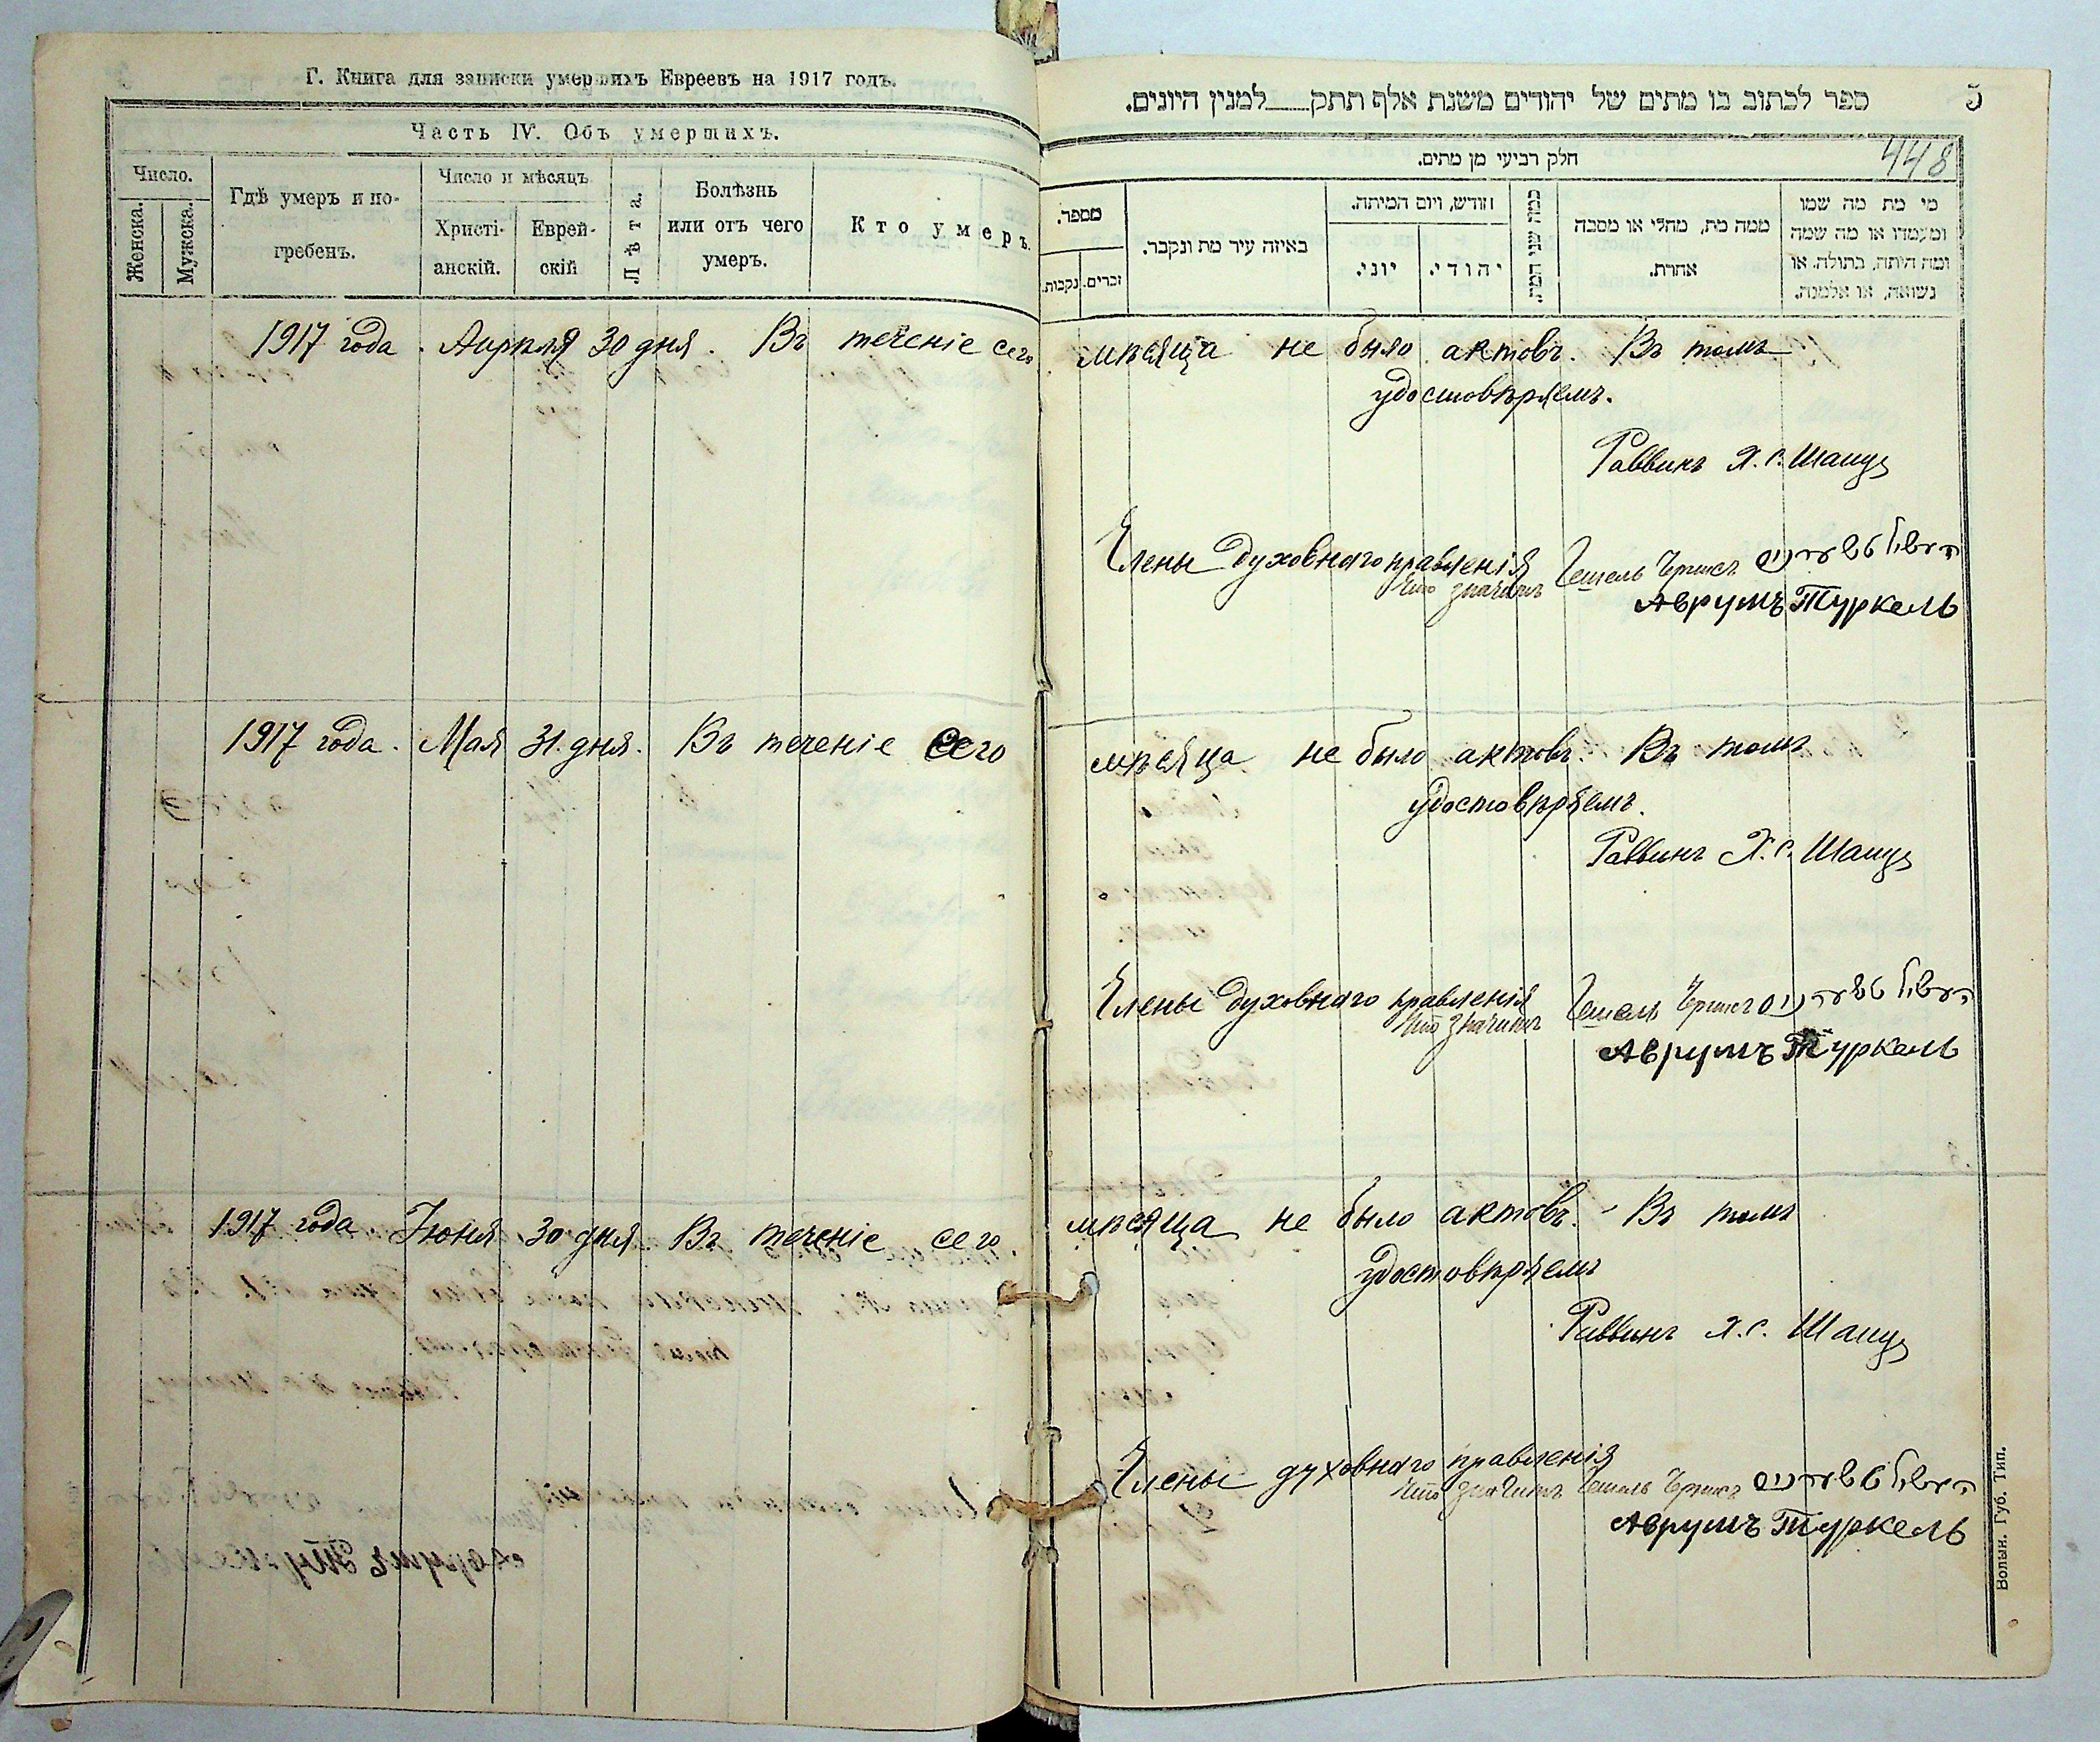 Г. Книга для записки умершихъ Евреевъ на 1917 годъ.
Часть IV. Объ умершихъ.
Число.
Женска.
Мужска.
Гдѣ умеръ и по-
гребенъ.
Число и мѣсяцъ
Христі-
анскій.
Еврей-
скій
Лѣта.
Болѣзнь
или отъ чего
умеръ.
Кто умеръ.
ספר לכתוב בו מתים של יהודים משנת אלף תתק למנין היונים.
5
448
חלק רביעי מן מתים.
מספר.
זכרים.
נקבות.
באיזה עיר מת ונקבר.
חודש, ויום המיתה.
יוני.
יהודי.
כמה שני המת.
ממה מת, מחלי או מסבה
אחרת.
מי מת מה שמו
ומעמדו או מה שמה
ומה היתה, בתולה, או
נשואה, או אלמנה.
1917 года. Апрѣля 30 дня. Въ теченіе сего мѣсяца не было актовъ. Въ томъ
удостовѣряемъ.
Раввинъ Х. С. Шапуд
Члены Духовнаго правленія
что значитъ Гешель Чернисъ העשיל טשערניס
Аврумъ Туркель
1917 года. Мая 31 дня. Въ теченіе сего мѣсяца не было актовъ. Въ томъ
удостовѣряемъ.
Раввинъ Х. С. Шапуд
Члены Духовнаго правленія
что значитъ Гешель Чернисъ העשיל טשערניס
Аврумъ Туркель
1917 года Іюня 30 дня. Въ теченіе сего мѣсяца не было актовъ. Въ томъ
удостовѣряемъ
Раввинъ Х. С. Шапуд
Члены духовнаго правленія
что значитъ Гешель Чернисъ העשיל טשערניס
Аврумъ Туркель
Волын. Губ. Тип.